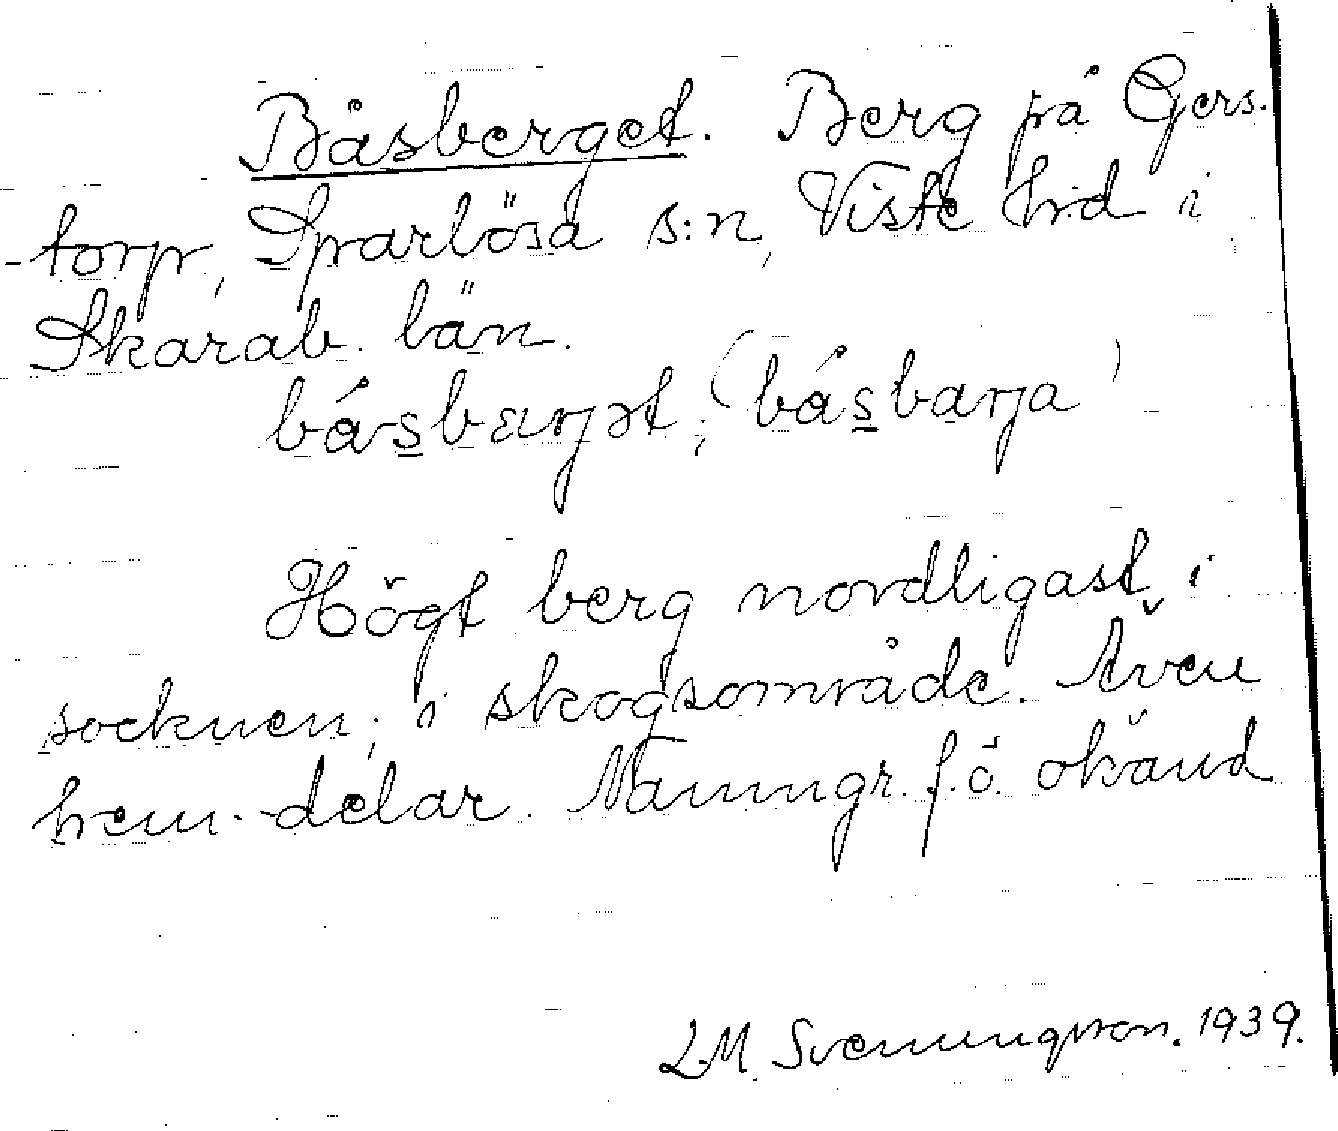 Båsberget. Berg på Gers-
torp, Sparlösa s:n, Viste hrd i
Skarab. län.
Högt berg nordligast i
socknen; i skogsområde. Även
hem.-delar. Namngr. f.ö. okänd
L.M. Svenungsson. 1939.